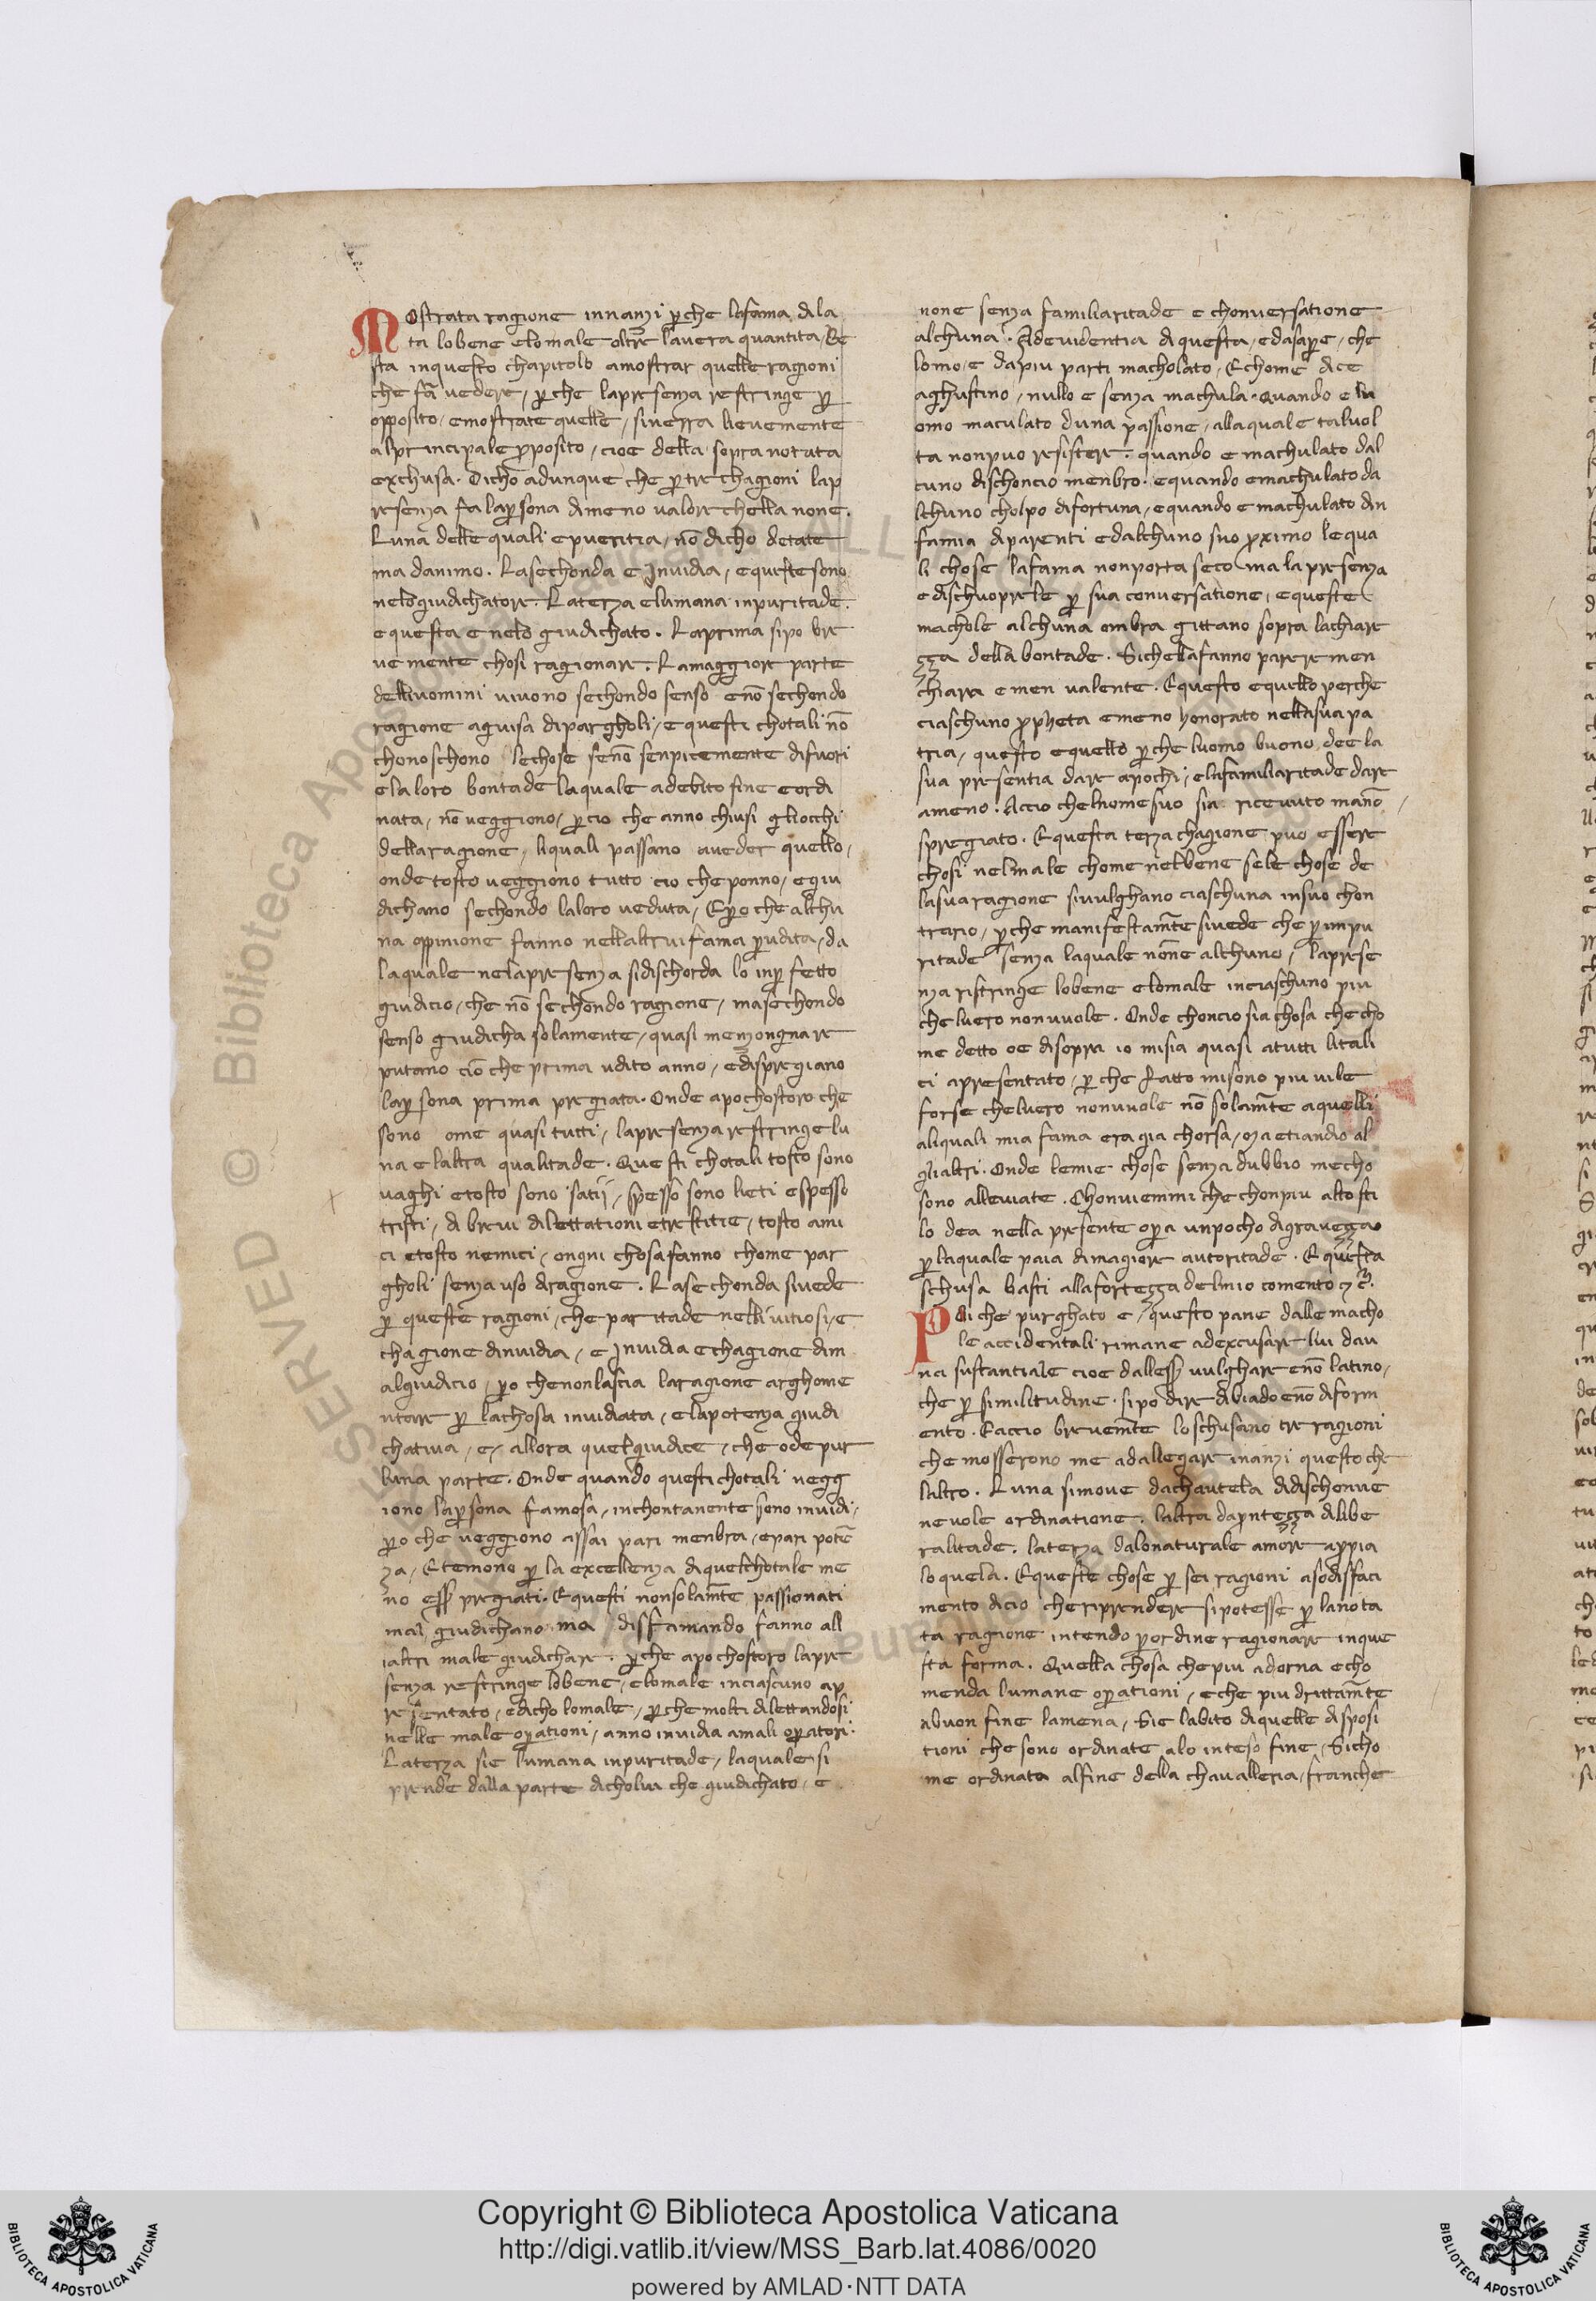 Mostrata ragione innanzi p̱che lafama dila
ta lobene elomale oltre lavera quantita / Re
sta inquesto chapitolo amostrar quelle ragioni
che fā vedere / p̱che lapresenza restringe p̱
opposito / emostrate quelle / siverra lievemente
alprincipale p̱posito / cioe della sopra notata
exchusa. Dicho adunque che p̱ tre chagioni lap
resenza fa lap̱sona dimeno valore chella none.
Luna delle quali epueritia / nō dicho detate
ma danimo. Lasechonda e Invidia / equeste sono
nelo giudichatore. Laterza elumana inpuritade.
equesta e nelo giudichato. Laprima sipo bre
ve mente chosi ragionare. Lamaggiore parte
delliuomini vivono sechondo senso enō sechondo
ragione aguisa dipargholi / e questi chotali nō
chonoschono lechose senō senpicemente difuori
elaloro bontade laquale adebito fine eordi
nata / nō veggiono / p̱cio che anno chiusi gliocchi
dellaragione / liquali passano aveder quello /
onde tosto veggiono tutto cio che ponno / egiu
dichano sechondo laloro veduta / Ep̱o che alchu
na oppinione fanno nellaltrui fama p̱udita / da
laquale nelapresenza sidischorda lo inp̱fetto
giudicio / che nō sechondo ragione / masechondo
senso giudicha solamente / quasi menzongna re
putano ciō che prima udito anno / edispregiano
lap̱sona prima pregiata. Onde apochostoro che
sono ome quasi tutti / lapresenza restringe lu
na e laltra qualitade. Questi chotali tosto sono
vaghi etosto sono satii / spesso sono lieti espesso
tristi / di brevi dilettationi etrestitie / tosto ami
ci etosto nemici / ongni chosa fanno chome par
gholi senza uso diragione. Lasechonda sivede
p̱ queste ragioni / che paritade nelli vitiosi / e
chagione dinvidia / e Invidia echagione dim
algiudicio / p̱o chenonlascia laragione arghome
ntare p̱ lachosa invidiata / elapotenza giudi
chativa / e / allora quelgiudice / che ode pur
luna parte. Onde quando questi chotali vegg
iono lap̱sona famosa / inchontanente sono invidi /
p̱o che veggiono assai pari menbra / epari potē
za / Etemono p̱ la excellenza diquelchotale me
no ess̱ pregiati. Equesti nonsolamēte passionati
mal giudichano ma diffamando fanno all
ialtri male giudichare. p̱che apochostoro lapre
senza restringe lobene / elomale inciascuno ap
resentato / edicho lomale / p̱che molti dilettandosi
nelle male op̱ationi / anno invidia amali op̱atori.
Laterza sie lumana inpuritade / laquale si
prende dalla parte dicholui che giudichato / e
none senza familiaritade e chonversatione
alchuna. Adevidentia diquesta / edasap̱e / che
lomo / e dapiu parti macholato / Echome dice
aghustino / nullo e senza machula. Quando e lu
omo maculato duna passione / allaquale talvol
ta nonpuo resistere. quando e machulato dal
cuno dischoncio menbro. equando emachulato da
lchuno cholpo difortuna / equando e machulato din
famia diparenti edalchuno suo p̱ximo lequa
li chose lafama nonporta seco ma la presenza
edischuoprele p̱ sua conversatione / equeste
machole alchuna ombra gittano sopra lachiare
zza della bontade. Sichella fanno parere men
chiara emen valente. Equesto equello perche
ciaschuno p̱pheta emeno honorato nellasua pa
tria / questo equello p̱che luomo buono dee la
sua presentia dare apochi / elafamiliaritade dare
ameno. Accio chelnome suo sia ricevuto mānō
spregiato. Equesta terza chagione puo essere
chosi nelmale chome nelbene sele chose de
lasua ragione sivulghano ciaschuna insuo chon
trario / p̱che manifestamēte sivede che p̱ inpu
ritade senza laquale nōne alchuno / laprese
nza ristringe lobene elomale inciaschuno piu
cheluero nonvuole. Onde choncio sia chosa checho
me detto oe disopra io misia quasi atutti litali
ci apresentato / p̱che fatto misono piu vile
forse cheluero nonvuole nō solamēte aquelli
aliquali mia fama era gia chorsa / ma etiandio al
glialtri. Onde lemie chose senza dubbio mecho
sono alleviate. Chonviemmi che chonpiu alto sti
lo dea nella presente op̱a unpocho digravezza
p̱ laquale paia dimagiore autoritade. Equesta
schusa basti allafortezza delmio comento &c̄.
Poi che purghato e / questo pane dalle macho
le accidentali rimane adexcusare lui dau
na sustantiale cioe dalless̱ vulghare enō latino /
che p̱ similitudine. sipo dire dibiado enō diform
ento. Eaccio brevemēte loschusano tre ragioni
che mosserono me adallegare inanzi questo che
laltro. Luna simove dachautela didischonve
nevole ordinatione. laltra dap̱ntezza dilibe
ralitade. laterza dalonaturale amore appia
loquela. Equeste chose p̱ sei ragioni asodisfaci
mento dicio cheriprendere sipotesse p̱ lanota
ta ragione intendo p̱ordine ragionare inque
sta forma. Quella chosa chepiu adorna echo
menda lumane op̱ationi / eche piu drittamēte
abuon fine lamena / Sie labito diquelle disposi
tioni che sono ordinate alo inteso fine / Sicho
me ordinata alfine della chavalleria / franche
Copyright © Biblioteca Apostolica Vaticana
http://digi.vatlib.it/view/MSS_Barb.lat.4086/0020
powered by AMLAD·NTT DATA
BIBLIOTECA APOSTOLICA VATICANA
BIBLIOTECA APOSTOLICA VATICANA